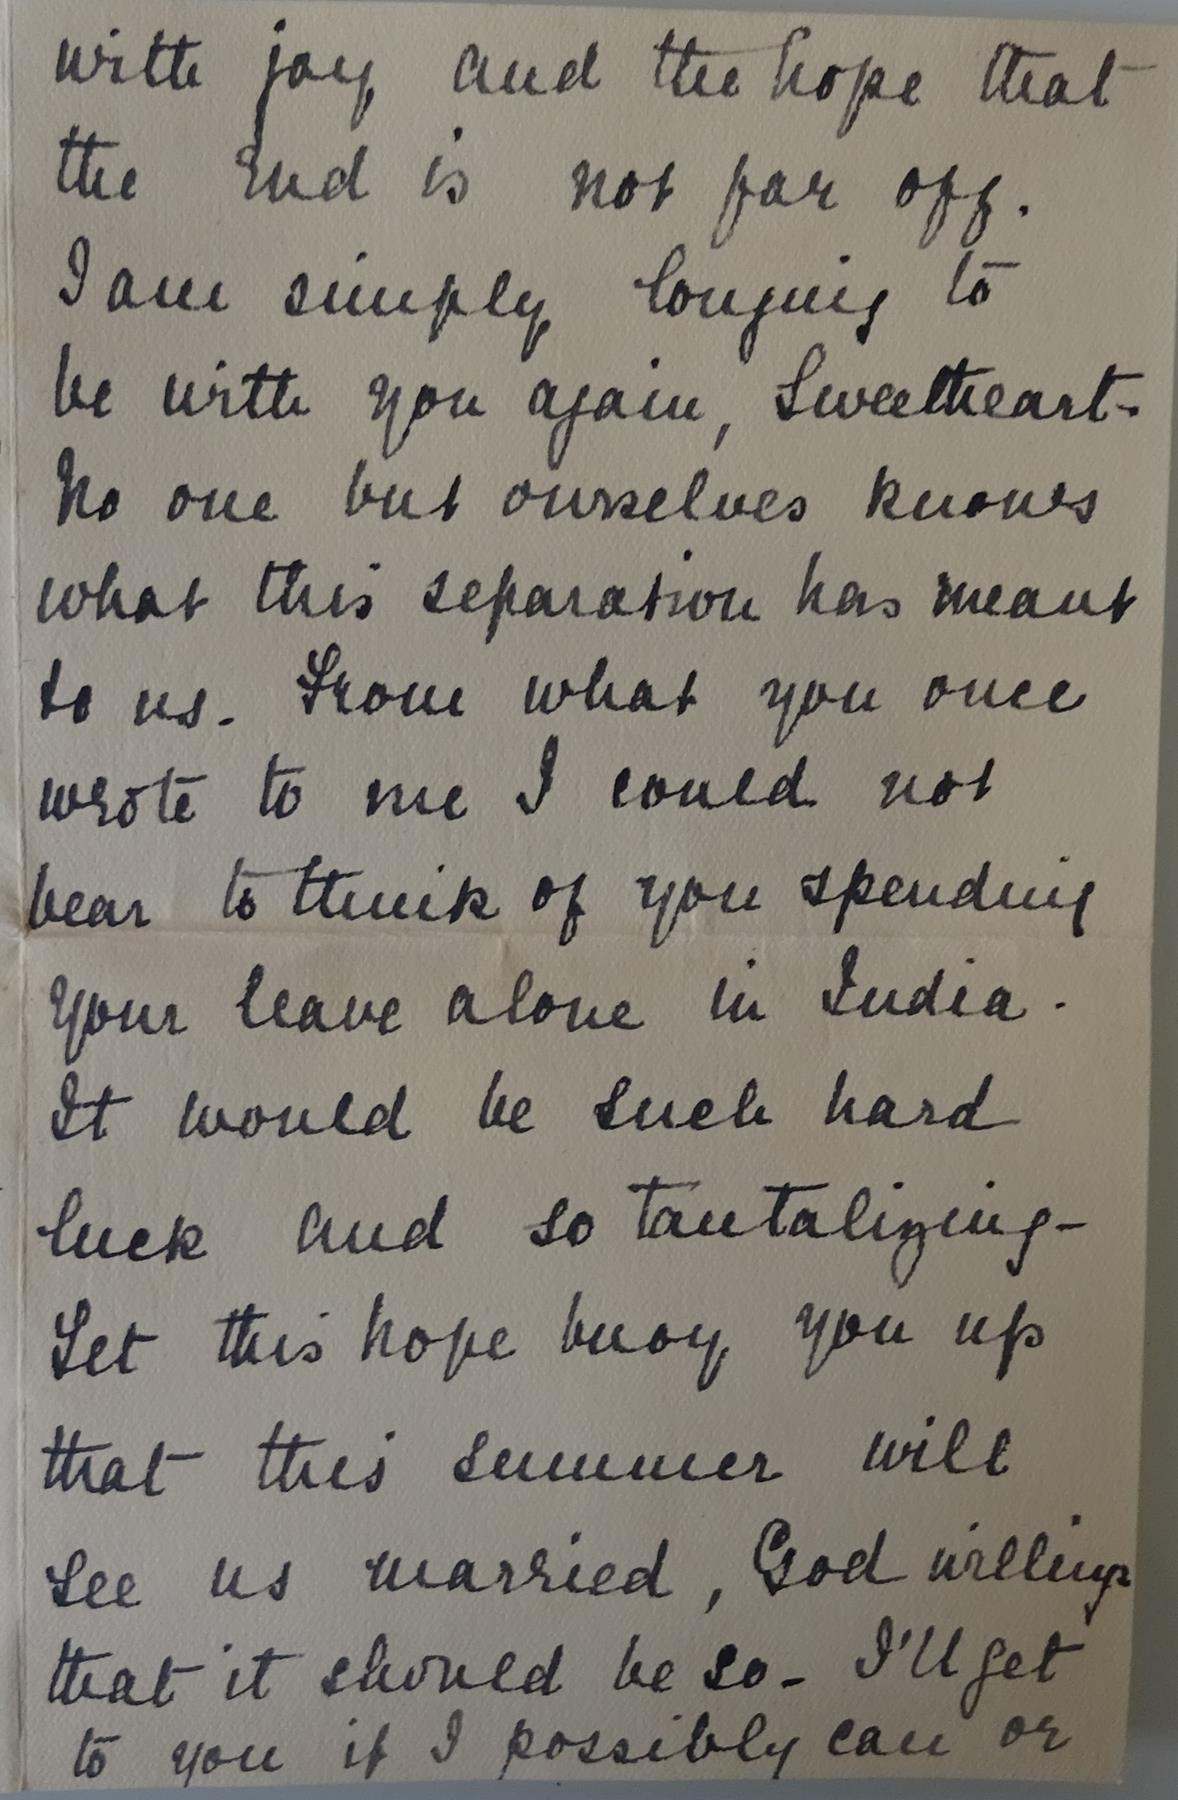 with joy and the hope that
the End is not far off.
I am simply longing to
be with you again, Sweetheart-
No one but ourselves knows
what this separation has meant
to us. From what you once
wrote to me I could not
bear to think of you spending
your leave alone in India.
It would be such hard
luck and so tantalizing-
Let this hope buoy you up
that this summer will
see us married, God willing
that it should be so- I'll get
to you if I possibly can or